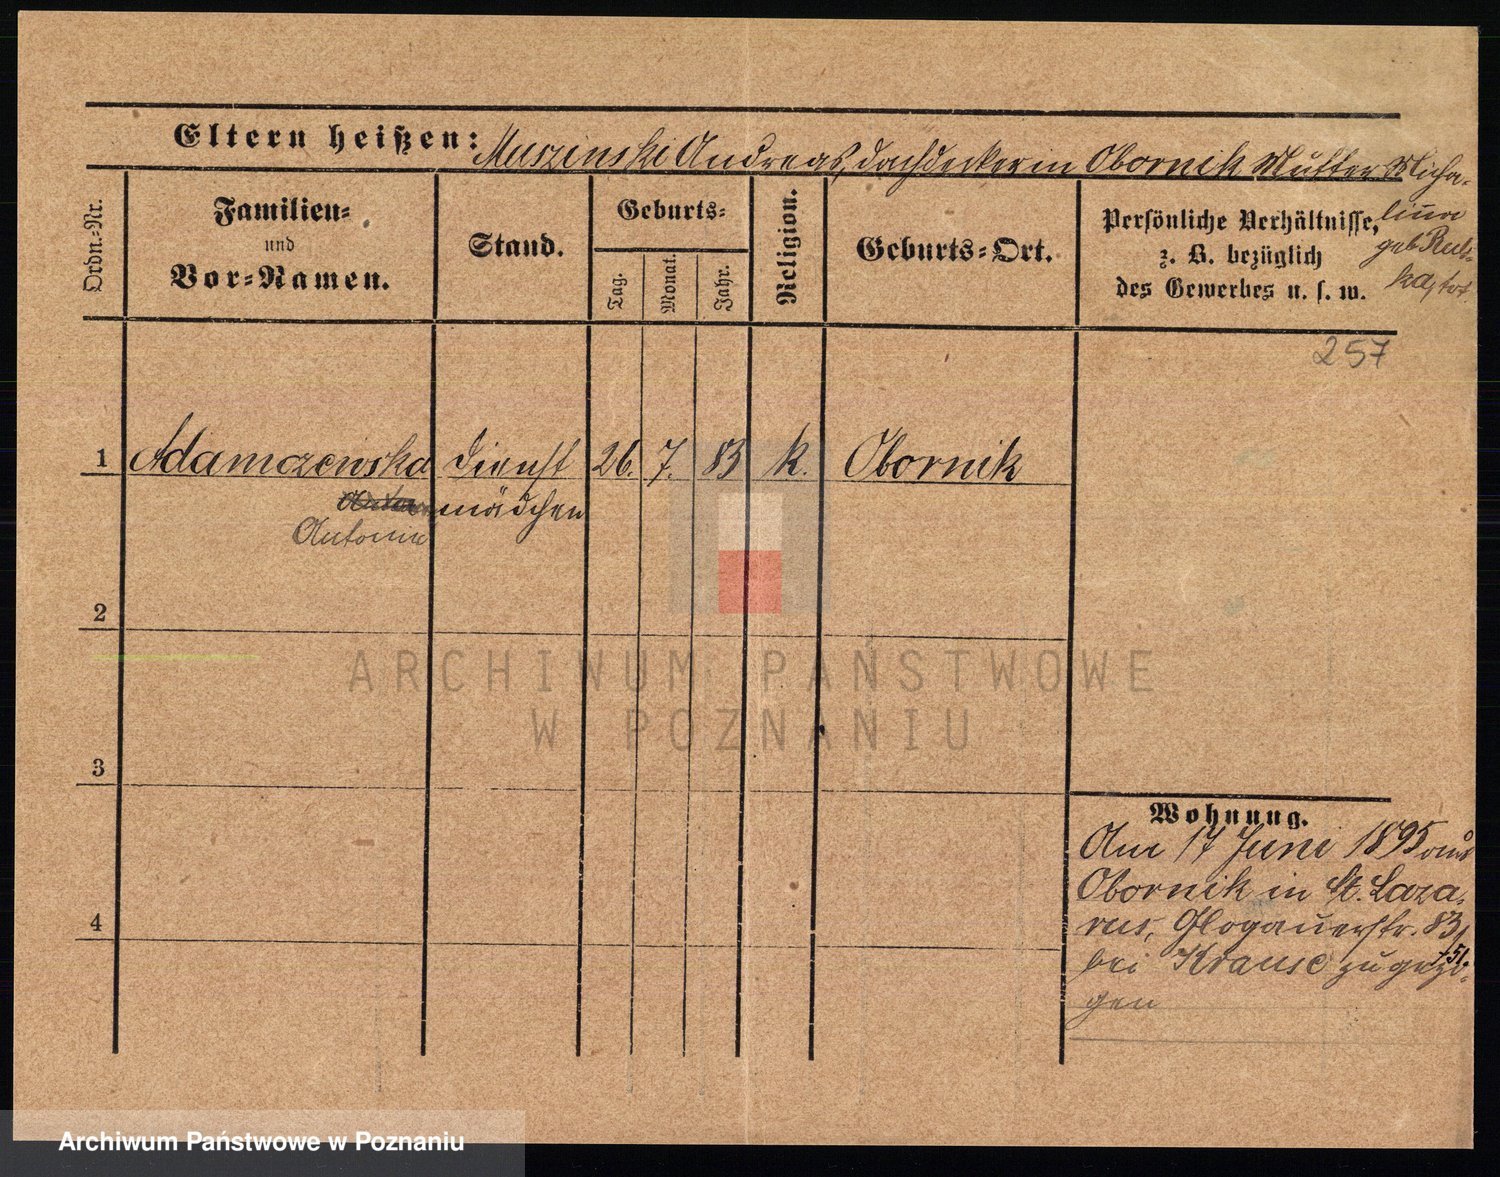 Eltern heißen: Muszinski Andreas, Dachdecker in Obornik Mutter Micha-
lina
geb
ka, tot
Ordn.-Nr.
Familien-
und
Vor-Namen.
Stand.
Geburts-
Tag.
Monat.
Jahr.
Religion.
Geburts-Ort.
Persönliche Verhältnisse,
z. B. bezüglich
des Gewerbes u. s. w.
257
1 Adamczewska Dienst 26. 7. 83 k. Obornik
mädchen
Antonie
2
3
4
ARCHIWUM PAŃSTWOWE
W POZNANIU
Wohnung.
Am 17 Juni 1895 aus
Obornik in St. Laza-
rus, Glogauerstr. 83
bei Krause zugezo-
gen
Archiwum Państwowe w Poznaniu